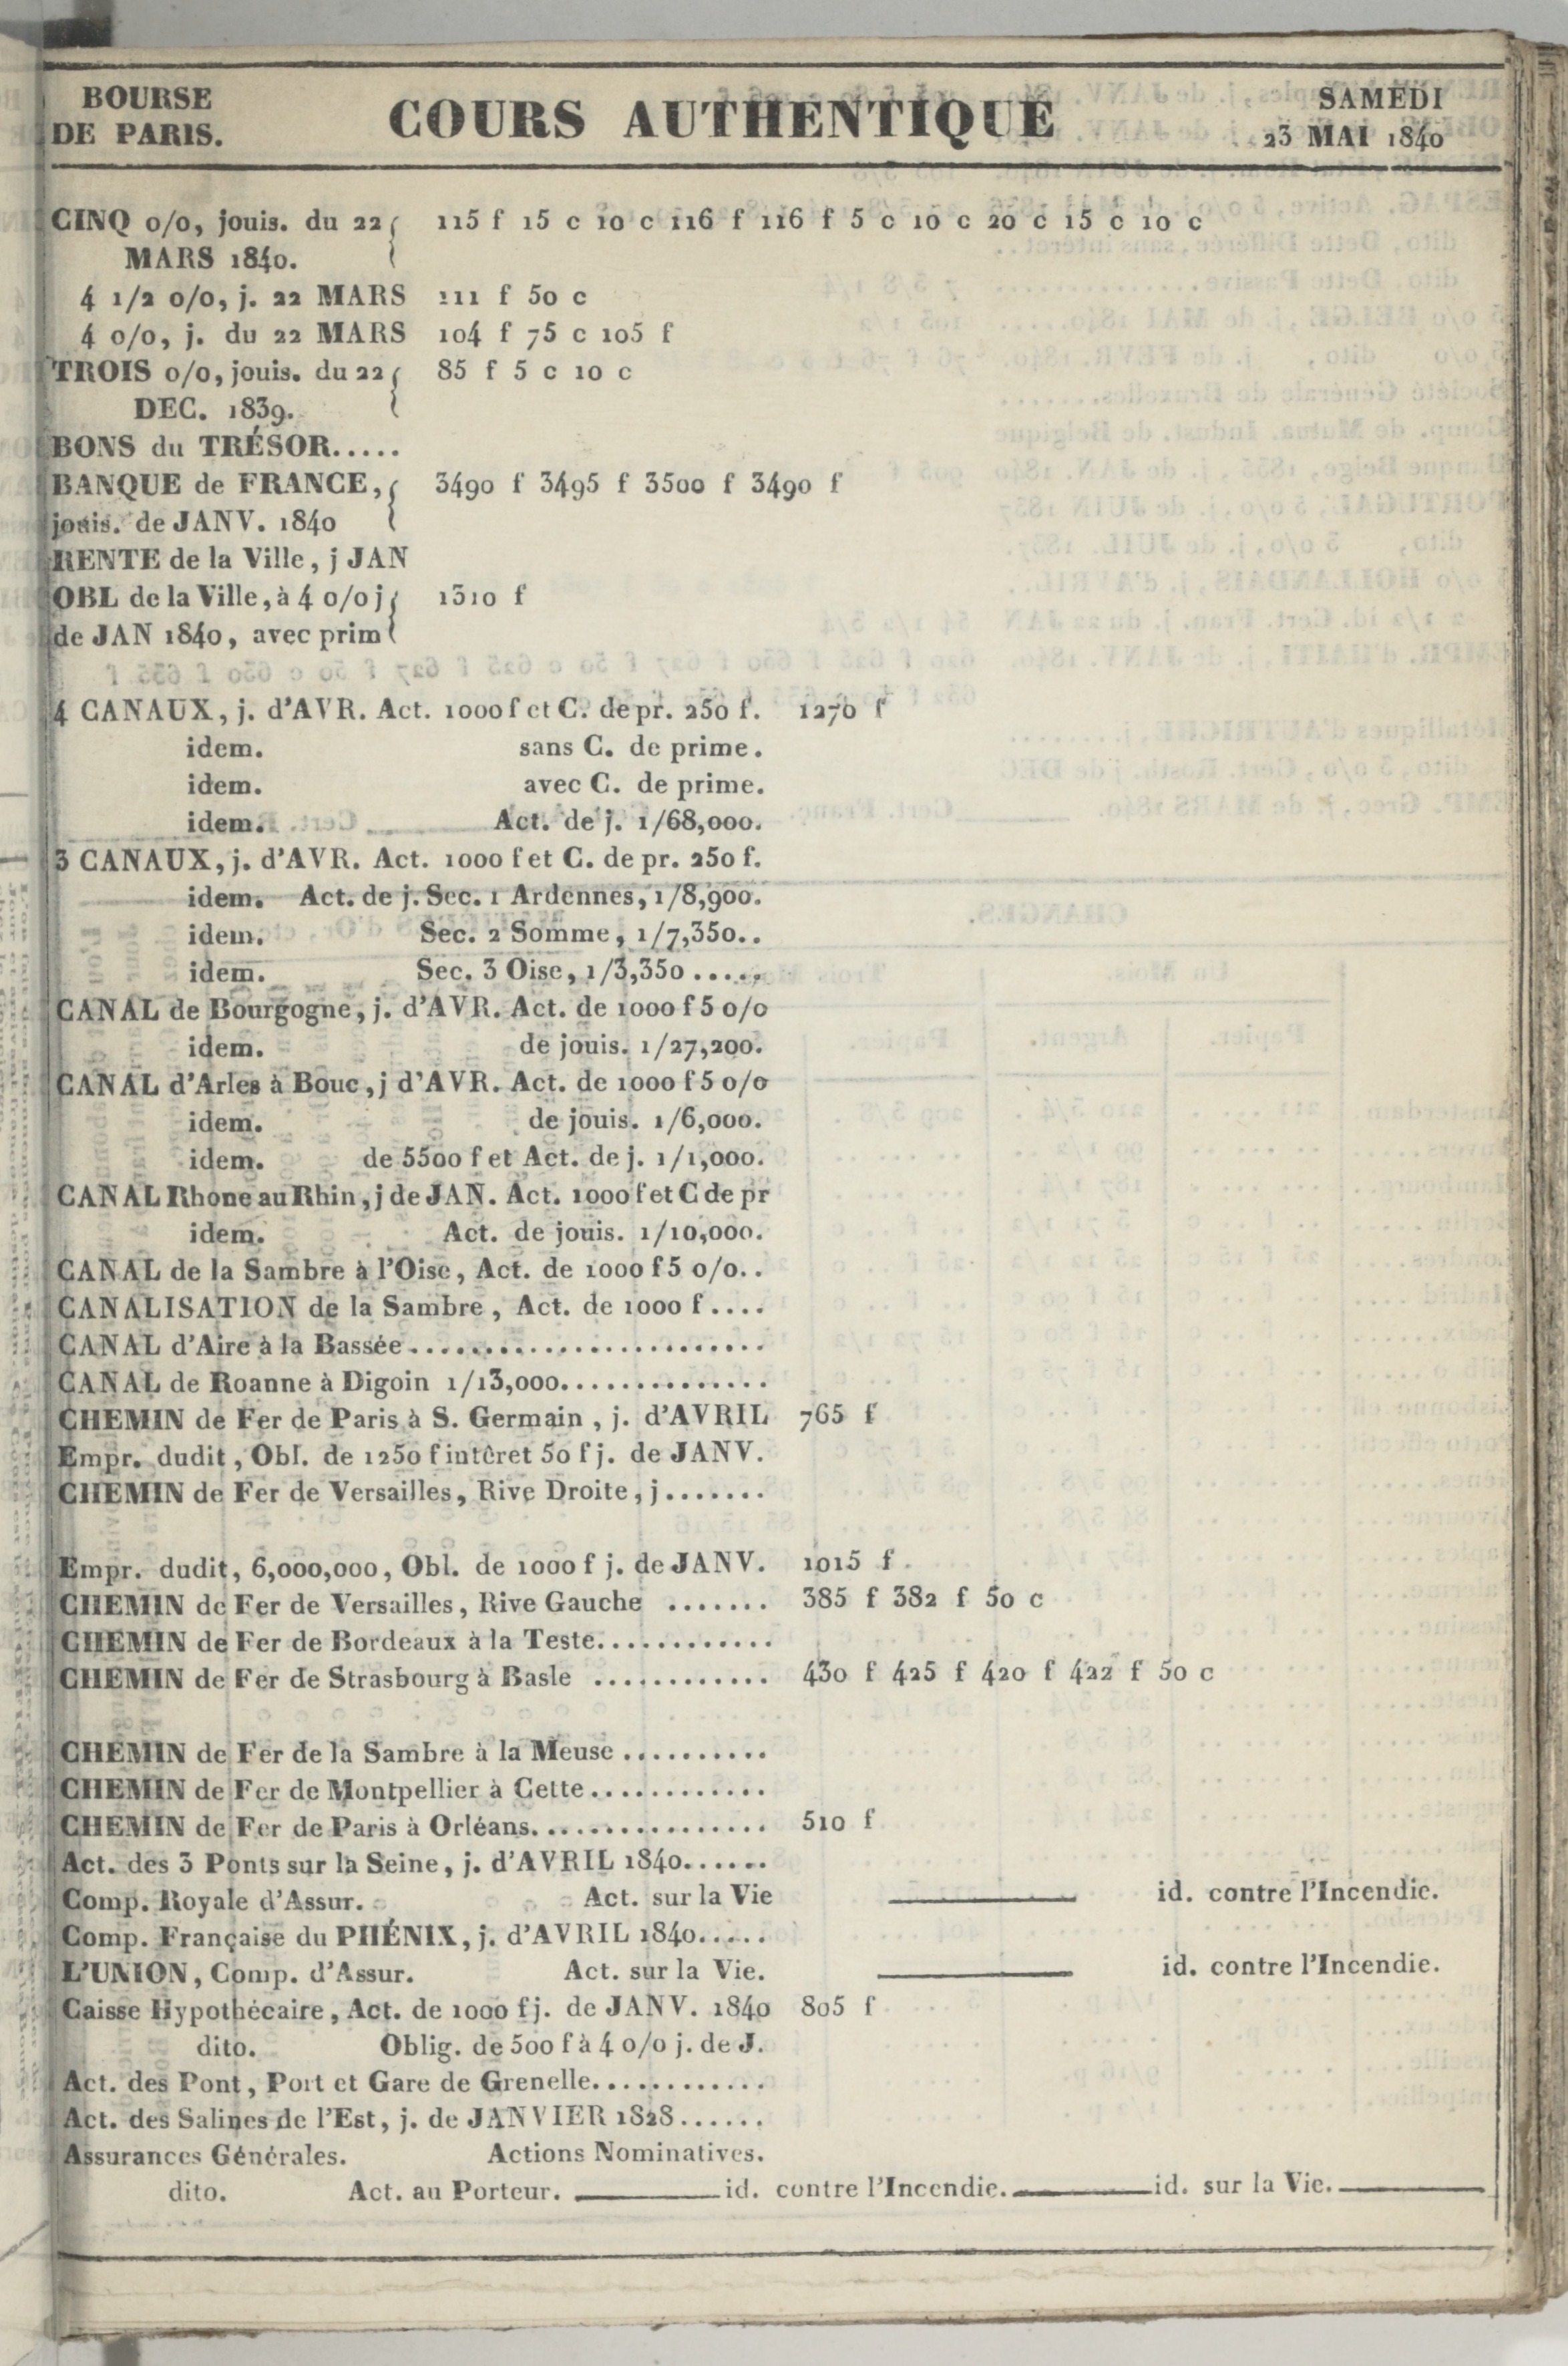 BOURSE
DE PARIS.
COURS AUTHENTIQUE
SAMEDI
23 MAI 1840
CINQ 0/0, jouis. du 22 115 f 15 c 10 c 116 f 116 f 5 c 10 c 20 c 15 c 10 c
MARS 1840.
4 1/2 0/0, j. 22 MARS 111 f 50 c
4 0/0, j. du 22 MARS 104 f 75 c 105 f
TROIS 0/0, jouis. du 22 85 f 5 c 10 c
DEC. 1839.
BONS du TRÉSOR.....
BANQUE de FRANCE, 3490 f 3495 f 3500 f 3490 f
jouis. de JANV. 1840
RENTE de la Ville, j JAN
OBL de la Ville, à 4 0/0 j 1310 f
de JAN 1840, avec prim
4 CANAUX, j. d'AVR. Act. 1000 f et C. de pr. 250 f. 1270 f
idem. sans C. de prime.
idem. avec C. de prime.
idem. Act. de j. 1/68,000.
3 CANAUX, j. d'AVR. Act. 1000 f et C. de pr. 250 f.
idem. Act. de j. Sec. 1 Ardennes, 1/8,900.
idem. Sec. 2 Somme, 1/7,350..
idem. Sec. 3 Oise, 1/3,350.....
CANAL de Bourgogne, j. d'AVR. Act. de 1000 f 5 0/0
idem. de jouis. 1/27,200.
CANAL d'Arles à Bouc, j d'AVR. Act. de 1000 f 5 0/0
idem. de jouis. 1/6,000.
idem. de 5500 f et Act. de j. 1/1,000.
CANAL Rhone au Rhin, j de JAN. Act. 1000 f et C de pr
idem. Act. de jouis. 1/10,000.
CANAL de la Sambre à l'Oise, Act. de 1000 f 5 0/0..
CANALISATION de la Sambre, Act. de 1000 f....
CANAL d'Aire à la Bassée........................
CANAL de Roanne à Digoin 1/13,000..............
CHEMIN de Fer de Paris à S. Germain, j. d'AVRIL 765 f
Empr. dudit, Obl. de 1250 f intêret 50 f j. de JANV.
CHEMIN de Fer de Versailles, Rive Droite, j.......
Empr. dudit, 6,000,000, Obl. de 1000 f j. de JANV. 1015 f
CHEMIN de Fer de Versailles, Rive Gauche ....... 385 f 382 f 50 c
CHEMIN de Fer de Bordeaux à la Teste............
CHEMIN de Fer de Strasbourg à Basle ............ 430 f 425 f 420 f 422 f 50 c
CHEMIN de Fer de la Sambre à la Meuse..........
CHEMIN de Fer de Montpellier à Cette............
CHEMIN de Fer de Paris à Orléans................ 510 f
Act. des 3 Ponts sur la Seine, j. d'AVRIL 1840......
Comp. Royale d'Assur. Act. sur la Vie id. contre l'Incendie.
Comp. Française du PHÉNIX, j. d'AVRIL 1840.....
L'UNION, Comp. d'Assur. Act. sur la Vie. id. contre l'Incendie.
Caisse Hypothécaire, Act. de 1000 f j. de JANV. 1840 805 f
dito. Oblig. de 500 f à 4 0/0 j. de J.
Act. des Pont, Port et Gare de Grenelle............
Act. des Salines de l'Est, j. de JANVIER 1828......
Assurances Générales. Actions Nominatives.
dito. Act. au Porteur. id. contre l'Incendie. id. sur la Vie.